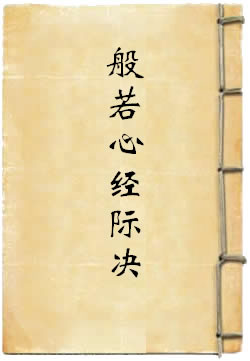 般若心经际决